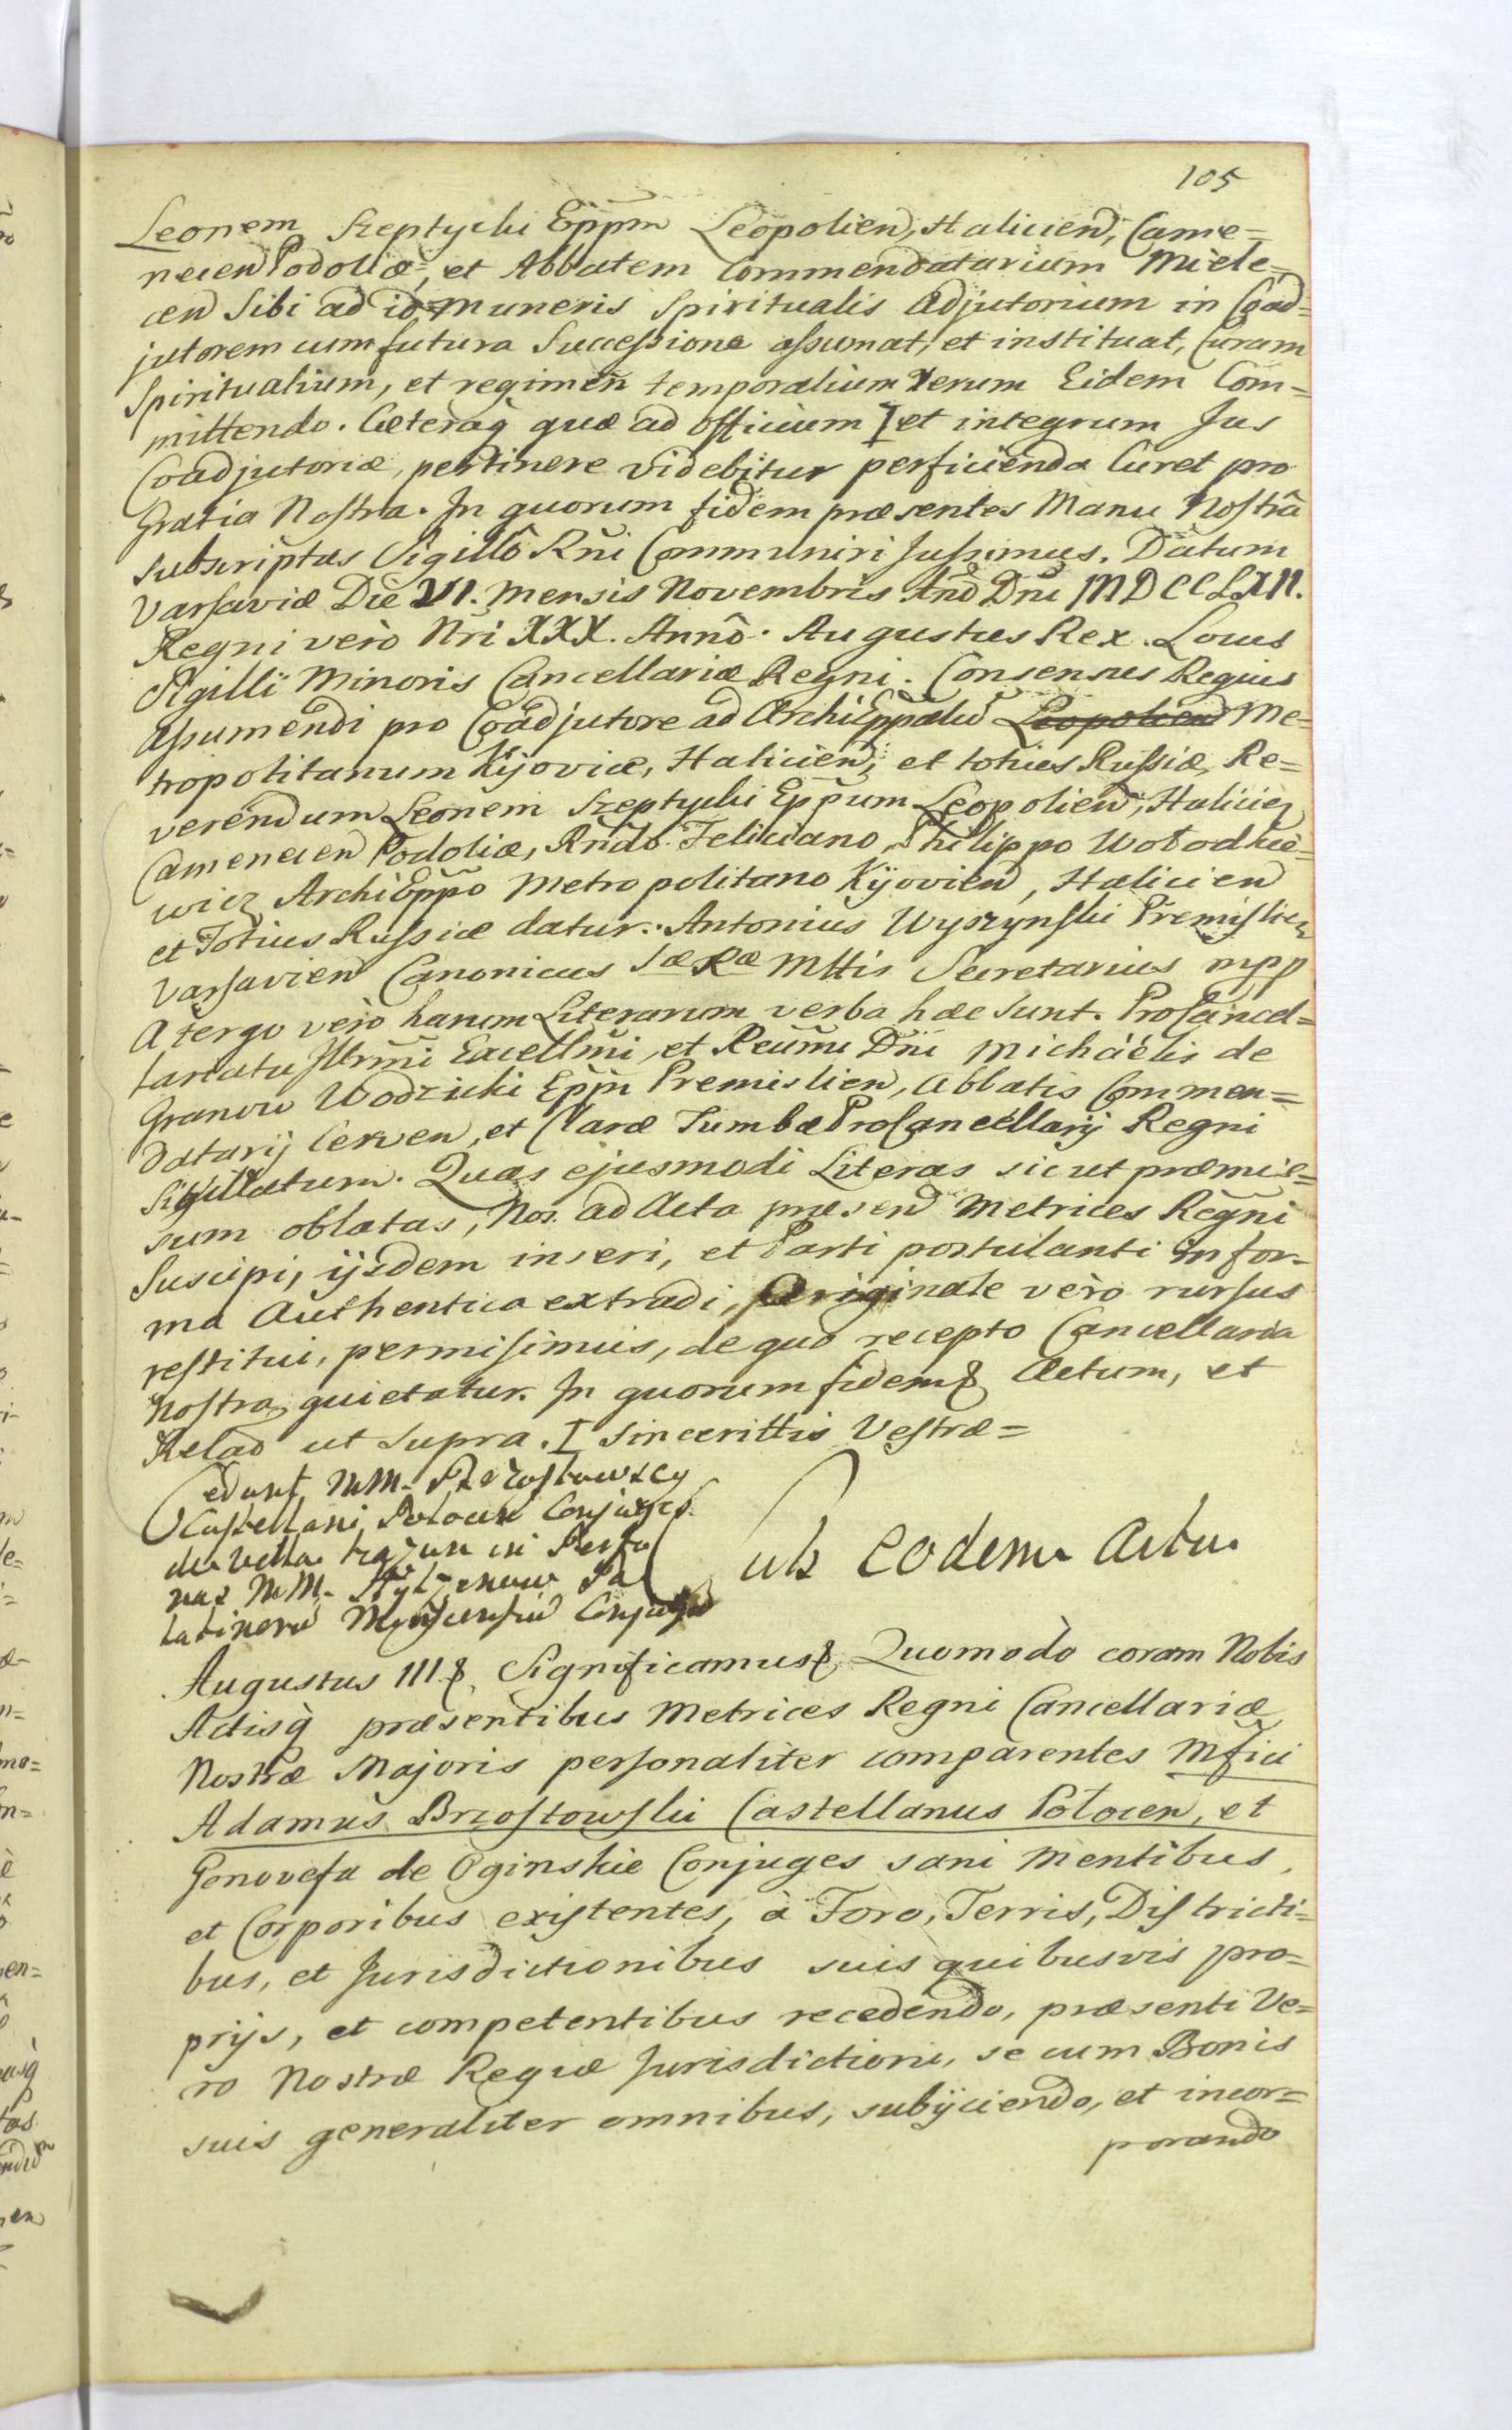 105
Leonem Szeptycki Eppm Leopolien, Halicien, Came=
necien Podoliæ, et Abbatem Commendatarium Miele=
cen Sibi ad id muneris Spiritualis adjutorium in Coad=
jutorem cum futura Successione assumat, et instituat, Curam
Spiritualium, et regimen temporalium rerum Eidem Com=
mittendo. Cæteraq quæ ad officium I et integrum Jus
Coadjutoriæ, pertinere videbitur perficienda Curet pro
Gratia Nostra. In quorum fidem præsentes Manu Nostrâ
subscriptas Sigillô Rñi Communiri Jussimus. Datum
Varsaviæ Die VI. Mensis Novembris Anô Dñi MDCCLXII.
Regni verò Nri XXX. Annô. Augustus Rex. Locus
Sigilli Minoris Cancellariæ Regni. Consensus Regius
Assumendi pro Coadjutore ad ArchiEppatu Leopolien Me=
tropolitanum Kijoviæ, Halicien, et totius Russiæ, Re=
verendum Leonem Szeptycki Eppum Leopolien, Halicien
Camenecien Podoliæ, Rndo Feliciano, Philippo Wołodkie=
wicz ArchiEppo Metropolitano Kijovien, Halicien
et Totius Russiæ datur. Antonius Wyszynski Premislien
Varsavien Canonicus Sæ Ræ Mttis Secretarius mpp
A tergo verò harum Literarum verba hæc sunt. ProCancel=
lariatu Illrmi Excellmi, et Reumi Dñi Michaëlis de
Granow Wodzicki Eppi Premislien, Abbatis Commen=
datarij Cerwen, et Claræ Tumbæ ProCancellarij Regni
Sigillatum. Quas ejusmodi Literas sicut præmis=
sum oblatas, Nos ad Acta præsen Metrices Regni
Suscipi, ijsdem inseri, et Parti postulanti in for=
ma Authentica extradi, Originale verò rursus
restitui, permisimus, de quo recepto Cancellaria
Nostra quietatur. In quorum fidem & Actum, et
Relao ut supra. I Sincerittis Vestræ=
Cedunt MM. Brzostowscy
Castellani Polocen Conjuges
de Villa in Perso
nas MM. Pa
latinoru Conjugu
Sub eodem Actu.
Augustus III &. Significamus &, Quomodò coram Nobis
Actisq præsentibus Metrices Regni Cancellariæ
Nostræ Majoris personaliter comparentes Mfici
Adamus Brzostowski Castellanus Polocen, et
Genovefa de Oginskie Conjuges sani Mentibus,
et Corporibus existentes, à Foro, Terris, Districti=
bus, et Jurisdictionibus suis quibusvis pro=
prijs, et competentibus recedendo, præsenti Ve=
ro Nostræ Regiæ Jurisdictioni, se cum Bonis
suis generaliter omnibus, subijciendo, et incor=
porando